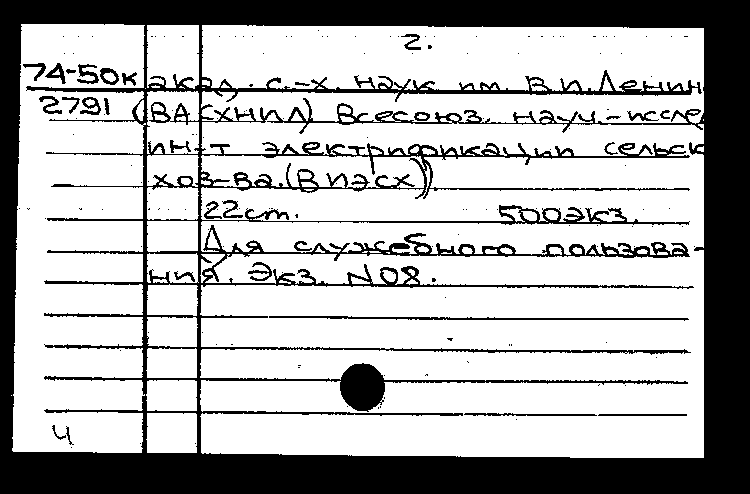 2.
74-50к акад. с.-х. наук им. В.И. Ленин
2791 (ВАСХНИЛ) Всесоюз. науч.-иссле
ин-т электрификации сельск
хоз-ва. (ВИЭСХ)).
22 cm. 500 экз.
Для служебного пользова-
ния. Экз. №08.
Ч